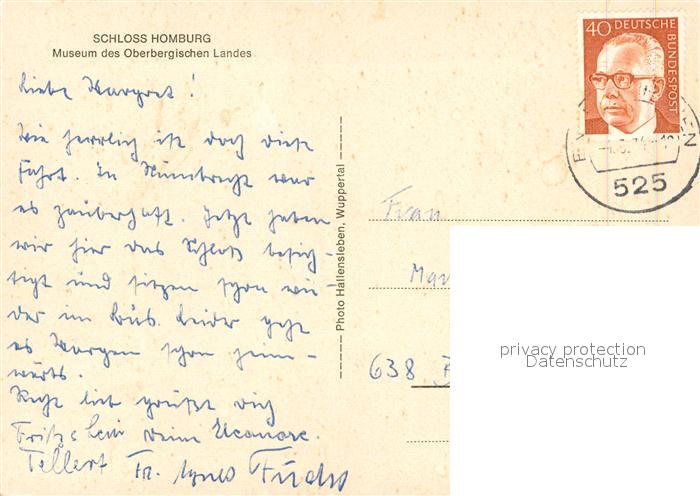 SCHLOSS HOMBURG
Museum des Oberbergischen Landes
Liebe Margret!
Wie herrlich ist doch diese
Fahrt. In Nümbrecht war
es zauberhaft. Jetzt haben
wir hier das Schloß besich-
tigt und sitzen schon wie-
der im Bus. Leider geht
es Morgen schon heim-
wärts.
Recht lieb grüßt Dich
Deine Eleonore.
Tellert Fr. Agnes Fuchs
Photo Hallensleben, Wuppertal
40 DEUTSCHE BUNDESPOST
525
Frau
638
privacy protection
Datenschutz